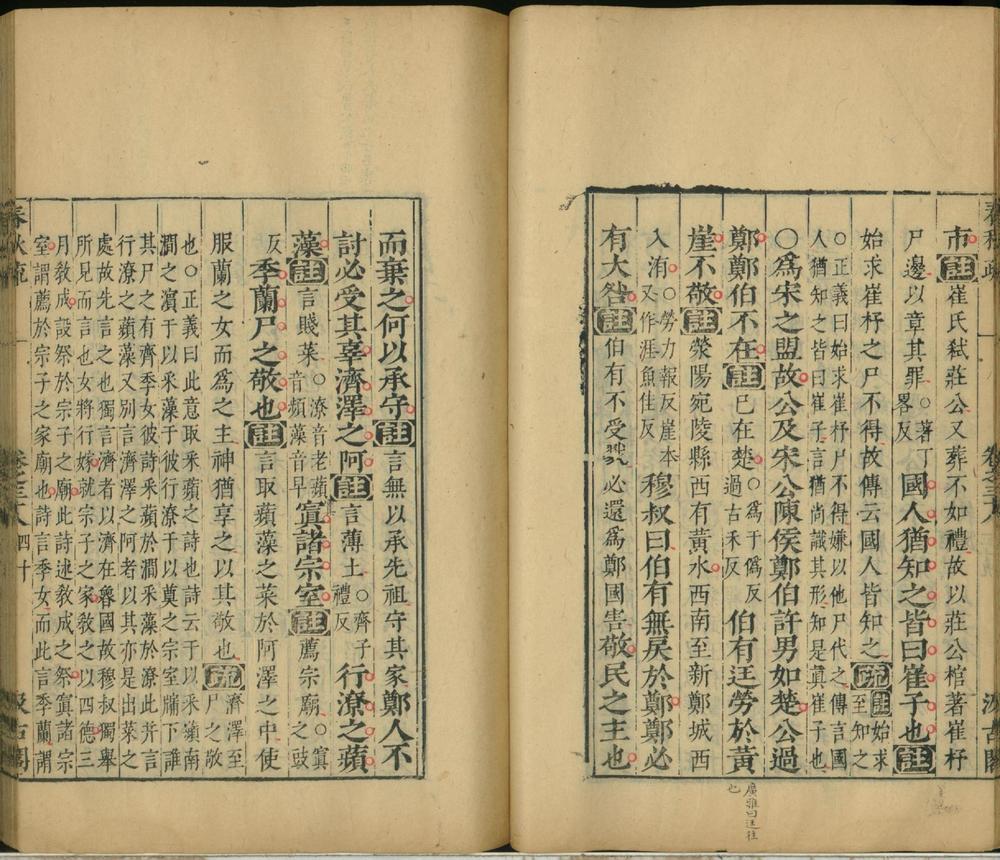 市註崔氏弒莊公又葬不如禮故以莊公棺著崔杼
尸邊以章其罪○著丁畧反國人猶知之皆曰崔子也註
始求崔杼之尸不得故傳云國人皆知之疏註始求至知之
○正義曰始求崔杼尸不得嫌以他尸代之傳言國
人猶知之皆曰崔子言猶尚識其形知是眞崔子也
○爲宋之盟故公及宋公陳侯鄭伯許男如楚公過
鄭鄭伯不在註已在楚○爲于僞反過古禾反伯有迋勞於黃
崖不敬註滎陽宛陵縣西有黃水西南至新鄭城西
入洧○勞力報反崖本又作涯魚佳反穆叔曰伯有無戾於鄭鄭必
有大咎註伯有不受戮必還爲鄭國害敬民之主也
廣雅曰迋往
也
而棄之何以承守註言無以承先祖守其家鄭人不
討必受其辜濟澤之阿註言薄土○齊子禮反行潦之蘋
藻註言賤菜○潦音老蘋音頻藻音早寘諸宗室註薦宗廟○寘之豉
反季蘭尸之敬也註言取蘋藻之菜於阿澤之中使
服蘭之女而爲之主神猶享之以其敬也疏濟澤至尸之敬
也○正義曰此意取采蘋之詩也詩云于以采蘋南
澗之濱于以采藻于彼行潦于以奠之宗室牖下誰
其尸之有齊季女彼詩采蘋於澗采藻於潦此并言
行潦之蘋藻又別言濟澤之阿者以其亦是出菜之
處故先言之也獨言濟者以濟在魯國故穆叔獨舉
所見而言也女將行嫁就宗子之家敎之以四德三
月敎成設祭於宗子之廟此詩述敎成之祭寘諸宗
室謂薦於宗子之家廟也詩言季女而此言季蘭謂